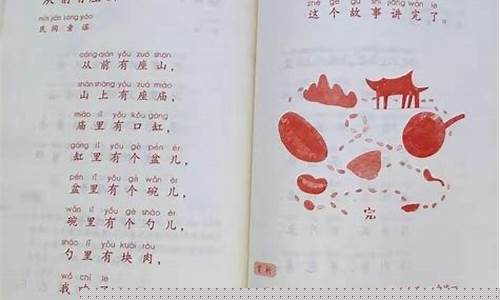 mín jiān tóng yáo
民间童谣
cóng qián yǒu zuò shān
从前有座山，
shān shàng yǒu zuò miào
山上有座庙，
miào lǐ yǒu kǒu gāng
庙里有口缸，
gāng lǐ yǒu gè pén ér
缸里有个盆儿，
pén lǐ yǒu gè wǎn ér
盆里有个碗儿，
wǎn lǐ yǒu gè sháo ér
碗里有个勺儿，
sháo lǐ yǒu kuài ròu
勺里有块肉，
wǒ chī le
我吃了
zhè gè gù shi jiǎng wán le
这个故事讲完了。
完